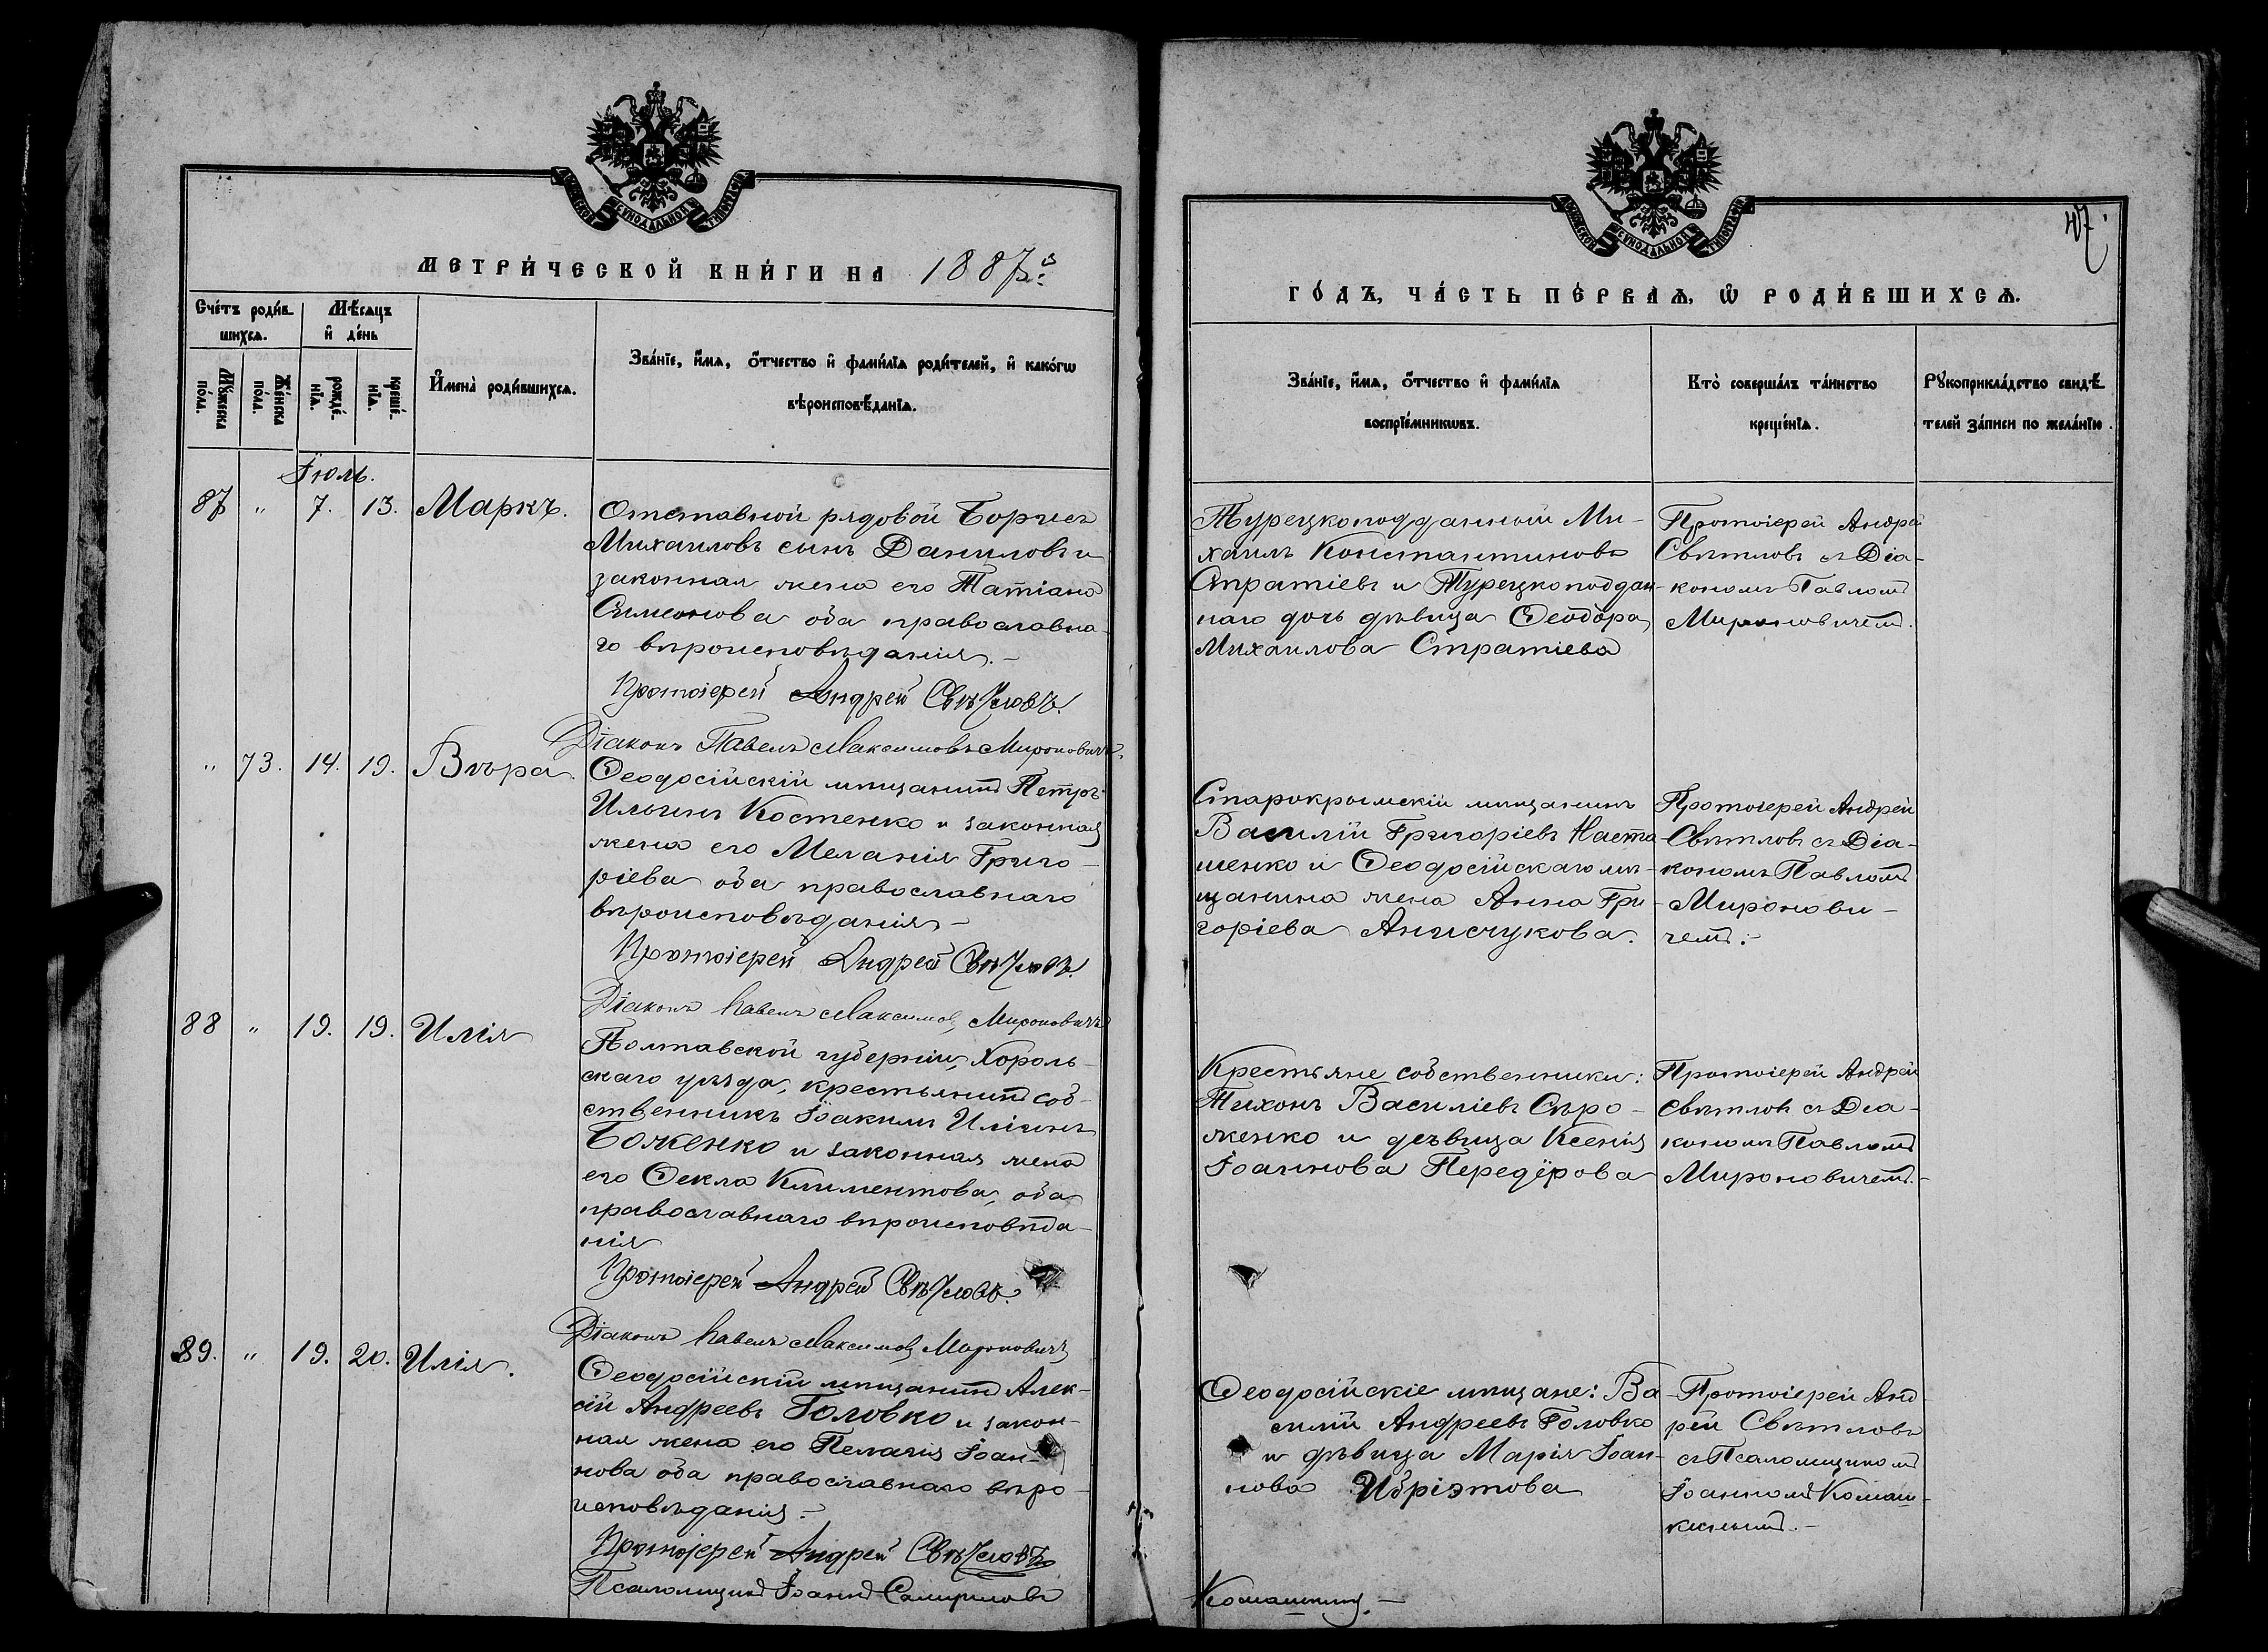 МОСКОВСКОЙ СУНОДАЛЬНОЙ ТИПОГРАФІИ
МЕТРИ́ЧЕСКОЙ КНИ́ГИ НА 1887й
Сче́тъ роди́в-
шихсѧ.
Мѣ́сѧцъ
и҆ де́нь
Мꙋ́жеска
по́ла.
Же́нска
по́ла.
рожде́-
нїѧ.
креще́-
нїѧ.
И҆мена̀ роди́вшихсѧ.
Зва́нїе, и҆́мѧ, ѻ҆́тчество и҆ фами́лїѧ роди́телей, и҆ како́гѡ
вѣроисповѣ́данїѧ.
Іюль.
87 " 7. 13. Маркъ.
Отставной рядовой Борисъ
Михаиловъ сынъ Даниловъ и
законная жена его Татіана
Симеонова оба православна-
го вѣроисповѣданія.-
Протоіерей Андрей Свѣтловъ.
Діаконъ Павелъ Максимовъ Мироновичъ.
" 73. 14. 19. Вѣра.
Ѳеодосійскій мѣщанинъ Петръ
Ильинъ Костенко и законная
жена его Меланія Григо-
ріева оба православнаго
вѣроисповѣданія-
Протоіерей Андрей Свѣтловъ.
Діаконъ Павелъ Максимовъ Мироновичъ
88 " 19. 19. Илія
Полтавской губерніи, Хороль-
скаго уѣзда, крестьянинъ соб-
ственникъ Іоакимъ Иліинъ
Боженко и законная жена
его Ѳекла Климентова, оба
православнаго вѣроисповѣда-
нія
Протоіерей Андрей Свѣтловъ.
Діаконъ Павелъ Максимовъ Мироновичъ
89. " 19. 20. Илія.
Ѳеодосійскій мѣщанинъ Алек-
сій Андреевъ Головко и закон-
ная жена его Пелагія Іоан-
нова оба православнаго вѣро-
исповѣданія.-
Протоіерей Андрей Свѣтловъ
Псаломщикъ Іоаннъ
МОСКОВСКОЙ СУНОДАЛЬНОЙ ТИПОГРАФІИ
47.
ГО́ДЪ, ЧА́СТЬ ПЕ́РВАѦ, Ѡ҆ РОДИ́ВШИХСѦ.
Зва́нїе, и҆́мѧ, ѻ҆́тчество и҆ фами́лїѧ
воспрїе́мникѡвъ.
Кто̀ соверша́лъ та́инство
креще́нїѧ.
Рꙋкоприкла́дство свидѣ́-
телей за́писи по жела́нїю.
Турецкоподданный Ми-
хаилъ Константиновъ
Стратіевъ и Турецкоподдан-
наго дочь дѣвица Ѳеодора
Михаилова Стратіева
Протоіерей Андрей
Свѣтловъ съ Діа-
кономъ Павломъ
Мироновичемъ.
Старокрымскій мѣщанинъ
Василій Григоріевъ Наста-
шенко и Ѳеодосійскаго мѣ-
щанина жена Анна Гри-
горіева Анисчукова.
Протоіерей Андрей
Свѣтловъ съ Діа-
кономъ Павломъ
Миронови-
чемъ.-
Крестьяне собственники:
Тихонъ Василіевъ Сѣро-
женко и дѣвица Ксенія
Іоаннова Передёрова
Протоіерей Андрей
Свѣтловъ съ Діа-
кономъ Павломъ
Мироновичемъ.-
Ѳеодосійскіе мѣщане: Ва-
силій Андреевъ Головко
и дѣвица Марія Іоан-
нова
Протоіерей Анд-
рей Свѣтловъ
съ Псаломщикомъ
Іоанномъ Комаш-
кинымъ.-
Комашкинъ.-